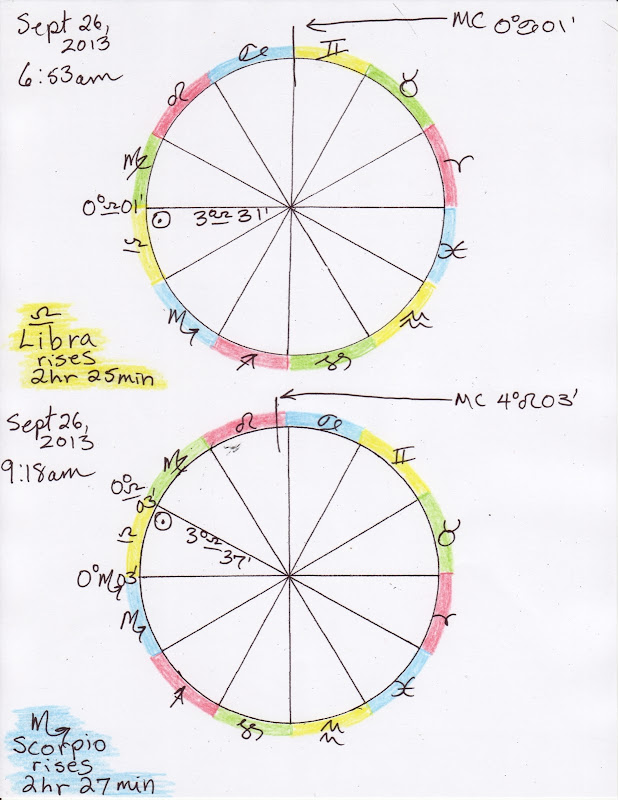 Sept 26,
2013
6:53am
MC 0°♋01'
♋
♊
♌
♉
♍
♈
0°♎01'
☉ 3°♎31'
♎
♓
♏
♒
♐
♑
♎
Libra
rises
2hr 25min
Sept 26,
2013
9:18am
MC 4°♌03'
♌
♋
♍
♊
0°♎
03'
☉ 3°♎
37'
♎
♉
0°♏03'
♏
♈
♐
♓
♑
♒
♏
Scorpio
rises
2hr 27min